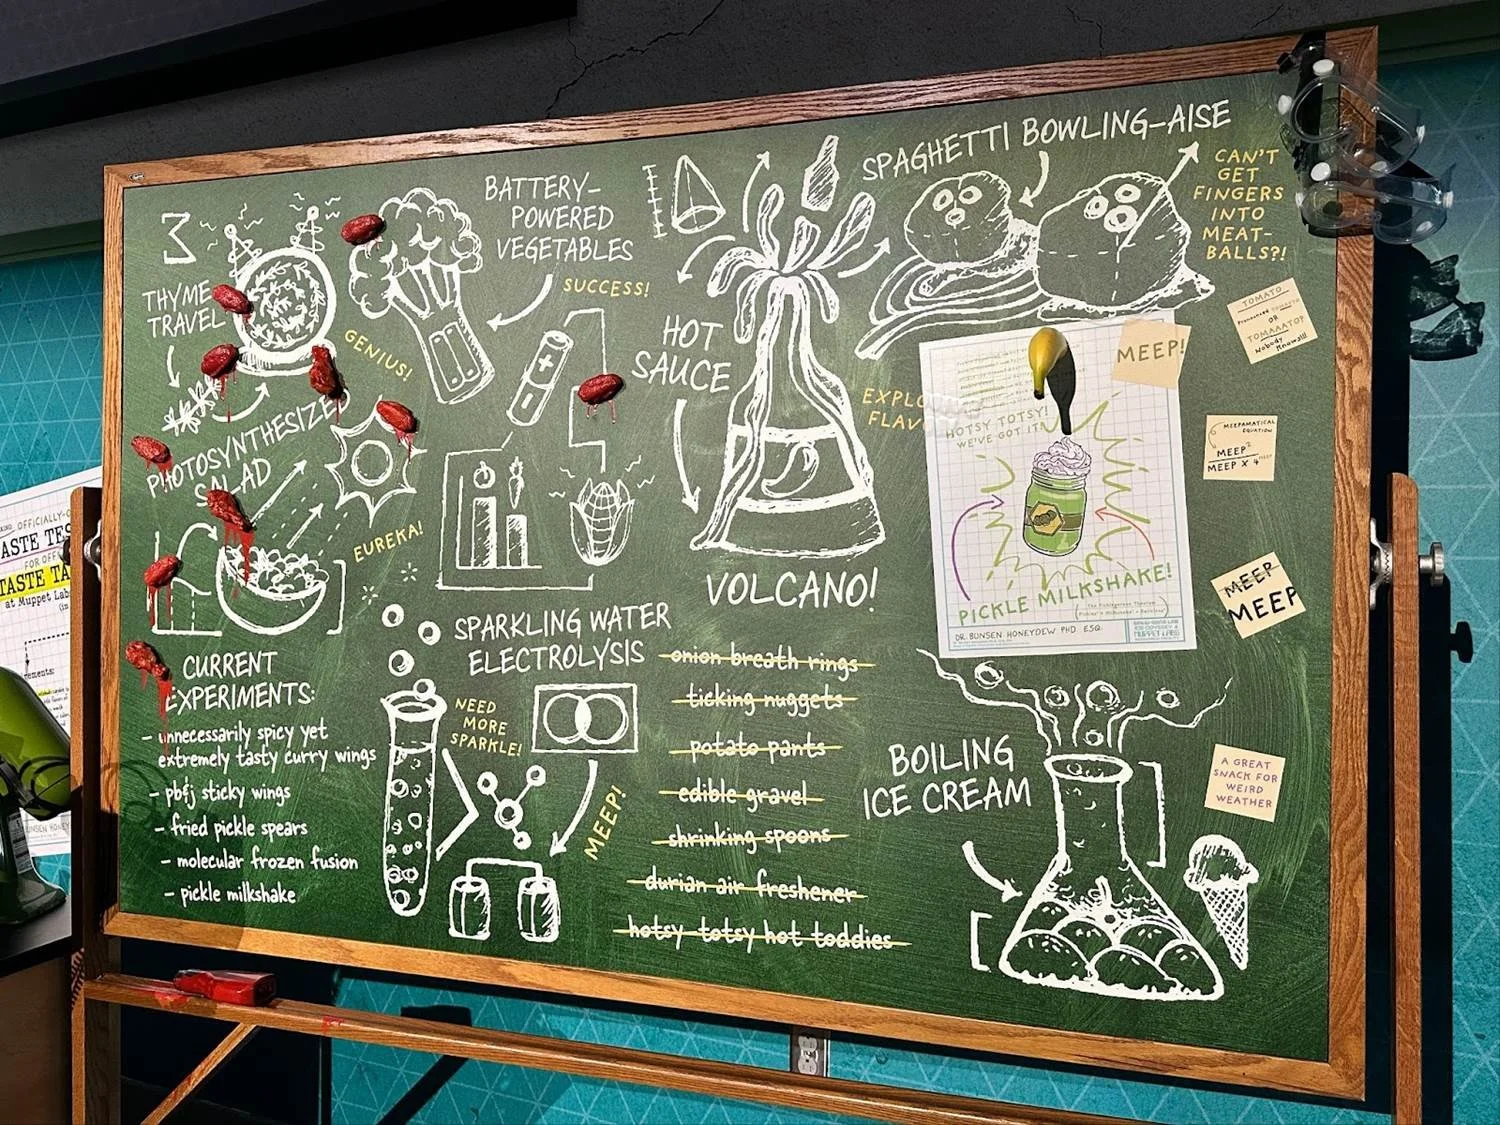 THYME
TRAVEL
BATTERY-
POWERED
VEGETABLES
SUCCESS!
GENIUS!
PHOTOSYNTHESIZE
SALAD
EUREKA!
HOT
SAUCE
VOLCANO!
SPAGHETTI BOWLING-AISE
CAN'T
GET
FINGERS
INTO
MEAT-
BALLS?!
MEEP!
HOTSY TOTSY!
WE'VE GOT IT
PICKLE MILKSHAKE!
DR. BUNSEN HONEYDEW PHD. ESQ.
MUPPET LABS
TOMATO
OR
TOMAAATOP
Nobody
Knows!!!
MEEPAMATICAL
EQUATION
MEEP²
MEEP X 4
MEEP
MEEP
CURRENT
EXPERIMENTS:
- unnecessarily spicy yet
extremely tasty curry wings
- pb&j sticky wings
- fried pickle spears
- molecular frozen fusion
- pickle milkshake
SPARKLING WATER
ELECTROLYSIS
NEED
MORE
SPARKLE!
MEEP!
onion breath rings
ticking nuggets
potato pants
edible gravel
shrinking spoons
durian air freshener
hotsy-totsy hot toddies
BOILING
ICE CREAM
A GREAT
SNACK FOR
WEIRD
WEATHER
OFFICIALLY-
TASTE TA
at Muppet Lab
BUNSEN HONEY